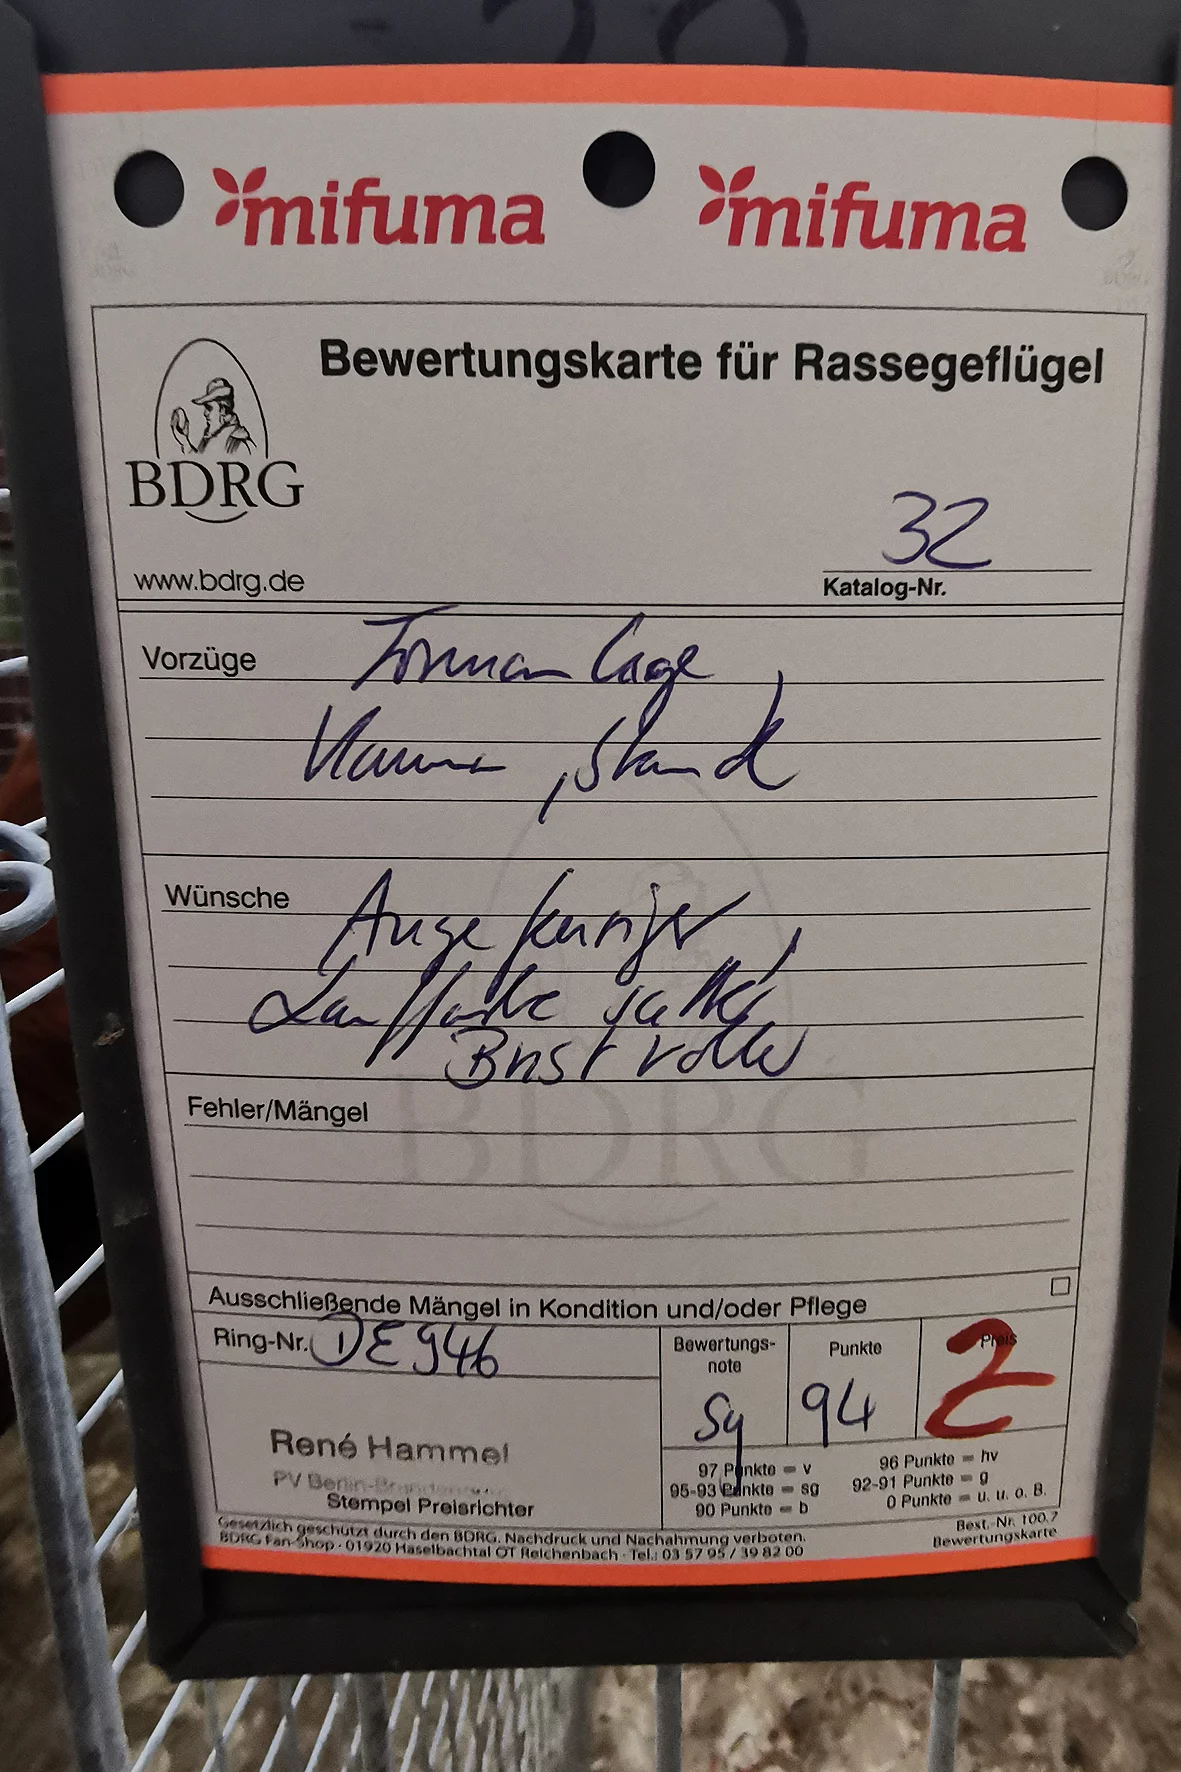 mifuma mifuma
Bewertungskarte für Rassegeflügel
BDRG
www.bdrg.de
32
Katalog-Nr.
Vorzüge
Lage,
Stand
Wünsche
Auge feuriger,
Lauffarbe satter,
Brust voller
Fehler/Mängel
BDRG
Ausschließende Mängel in Kondition und/oder Pflege
Ring-Nr. DE 946
Bewertungs-
note
sg
Punkte
94
Preis
2
René Hammel
PV Berlin-Brandenburg
Stempel Preisrichter
97 Punkte = v
96 Punkte = hv
95-93 Punkte = sg
92-91 Punkte = g
90 Punkte = b
0 Punkte = u. u. o. B.
Gesetzlich geschützt durch den BDRG. Nachdruck und Nachahmung verboten.
BDRG Fan-Shop · 01920 Haselbachtal OT Reichenbach · Tel.: 03 57 95 / 39 82 00
Best.-Nr. 100.7
Bewertungskarte